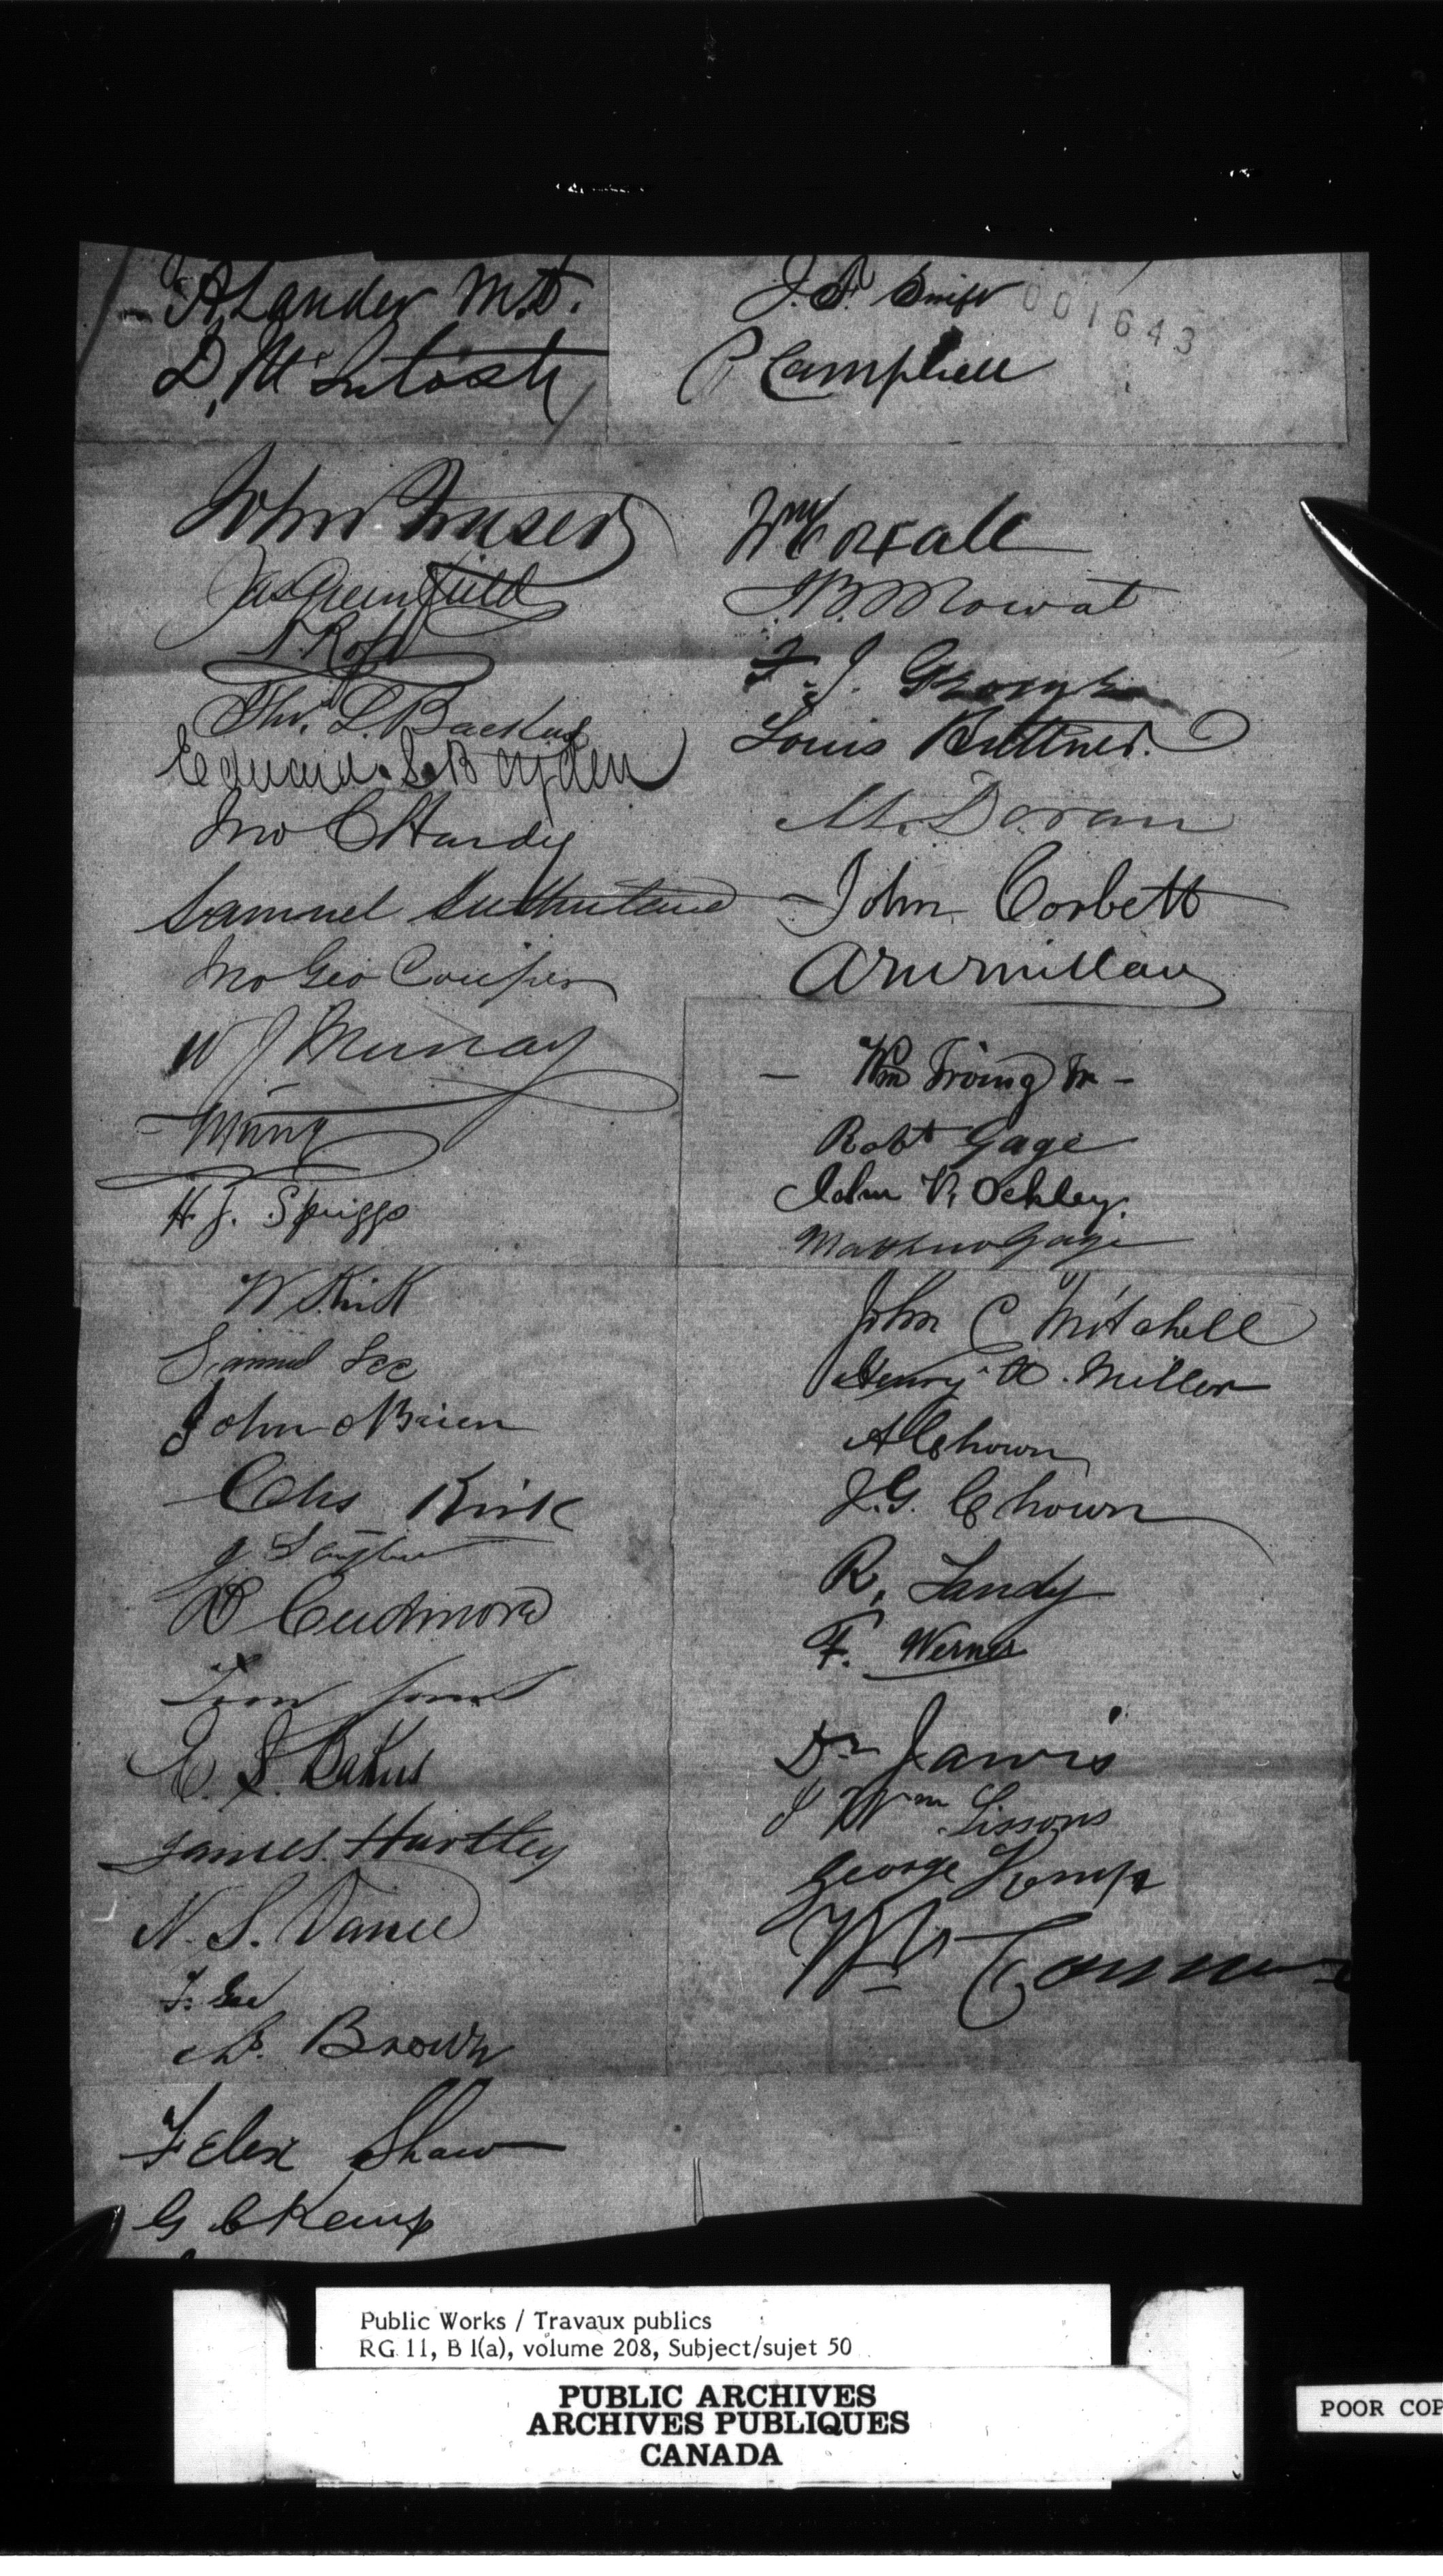 A. Lander M.D.
D, McIntosh
John Fraser
Jas Greenfield
Tho. L. Backus
Edward
Jno C Hardy
Samuel Sutherland
Jno Geo Couper
W J Murray
H. J. Spriggs
W Kirk
Samuel Lee
John OBrien
Chs Kirk
D Cudmore
E. S. Bakus
James Hartley
N. S. Vance
F. Lee
Brown
Felex Shaw
G C Kemp
J. Swift
001643
P Campbell
Wm Coxall
J.B. Mowat
F. J. George
Louis Buttner.
M. Doran
John Corbett
A McMillan
- Wm Irving Jr -
Robt Gage
John V. Ockley.
Matthew Gage
John C Mitchell
Henry W. Miller
A Chown
J.G. Chown
R. Tandy
F. Werner
Dr Jarvis
J Wm Lissons
George Kemp
Wm
Public Works / Travaux publics
RG 11, B 1(a), volume 208, Subject/sujet 50
PUBLIC ARCHIVES
ARCHIVES PUBLIQUES
CANADA
POOR COP